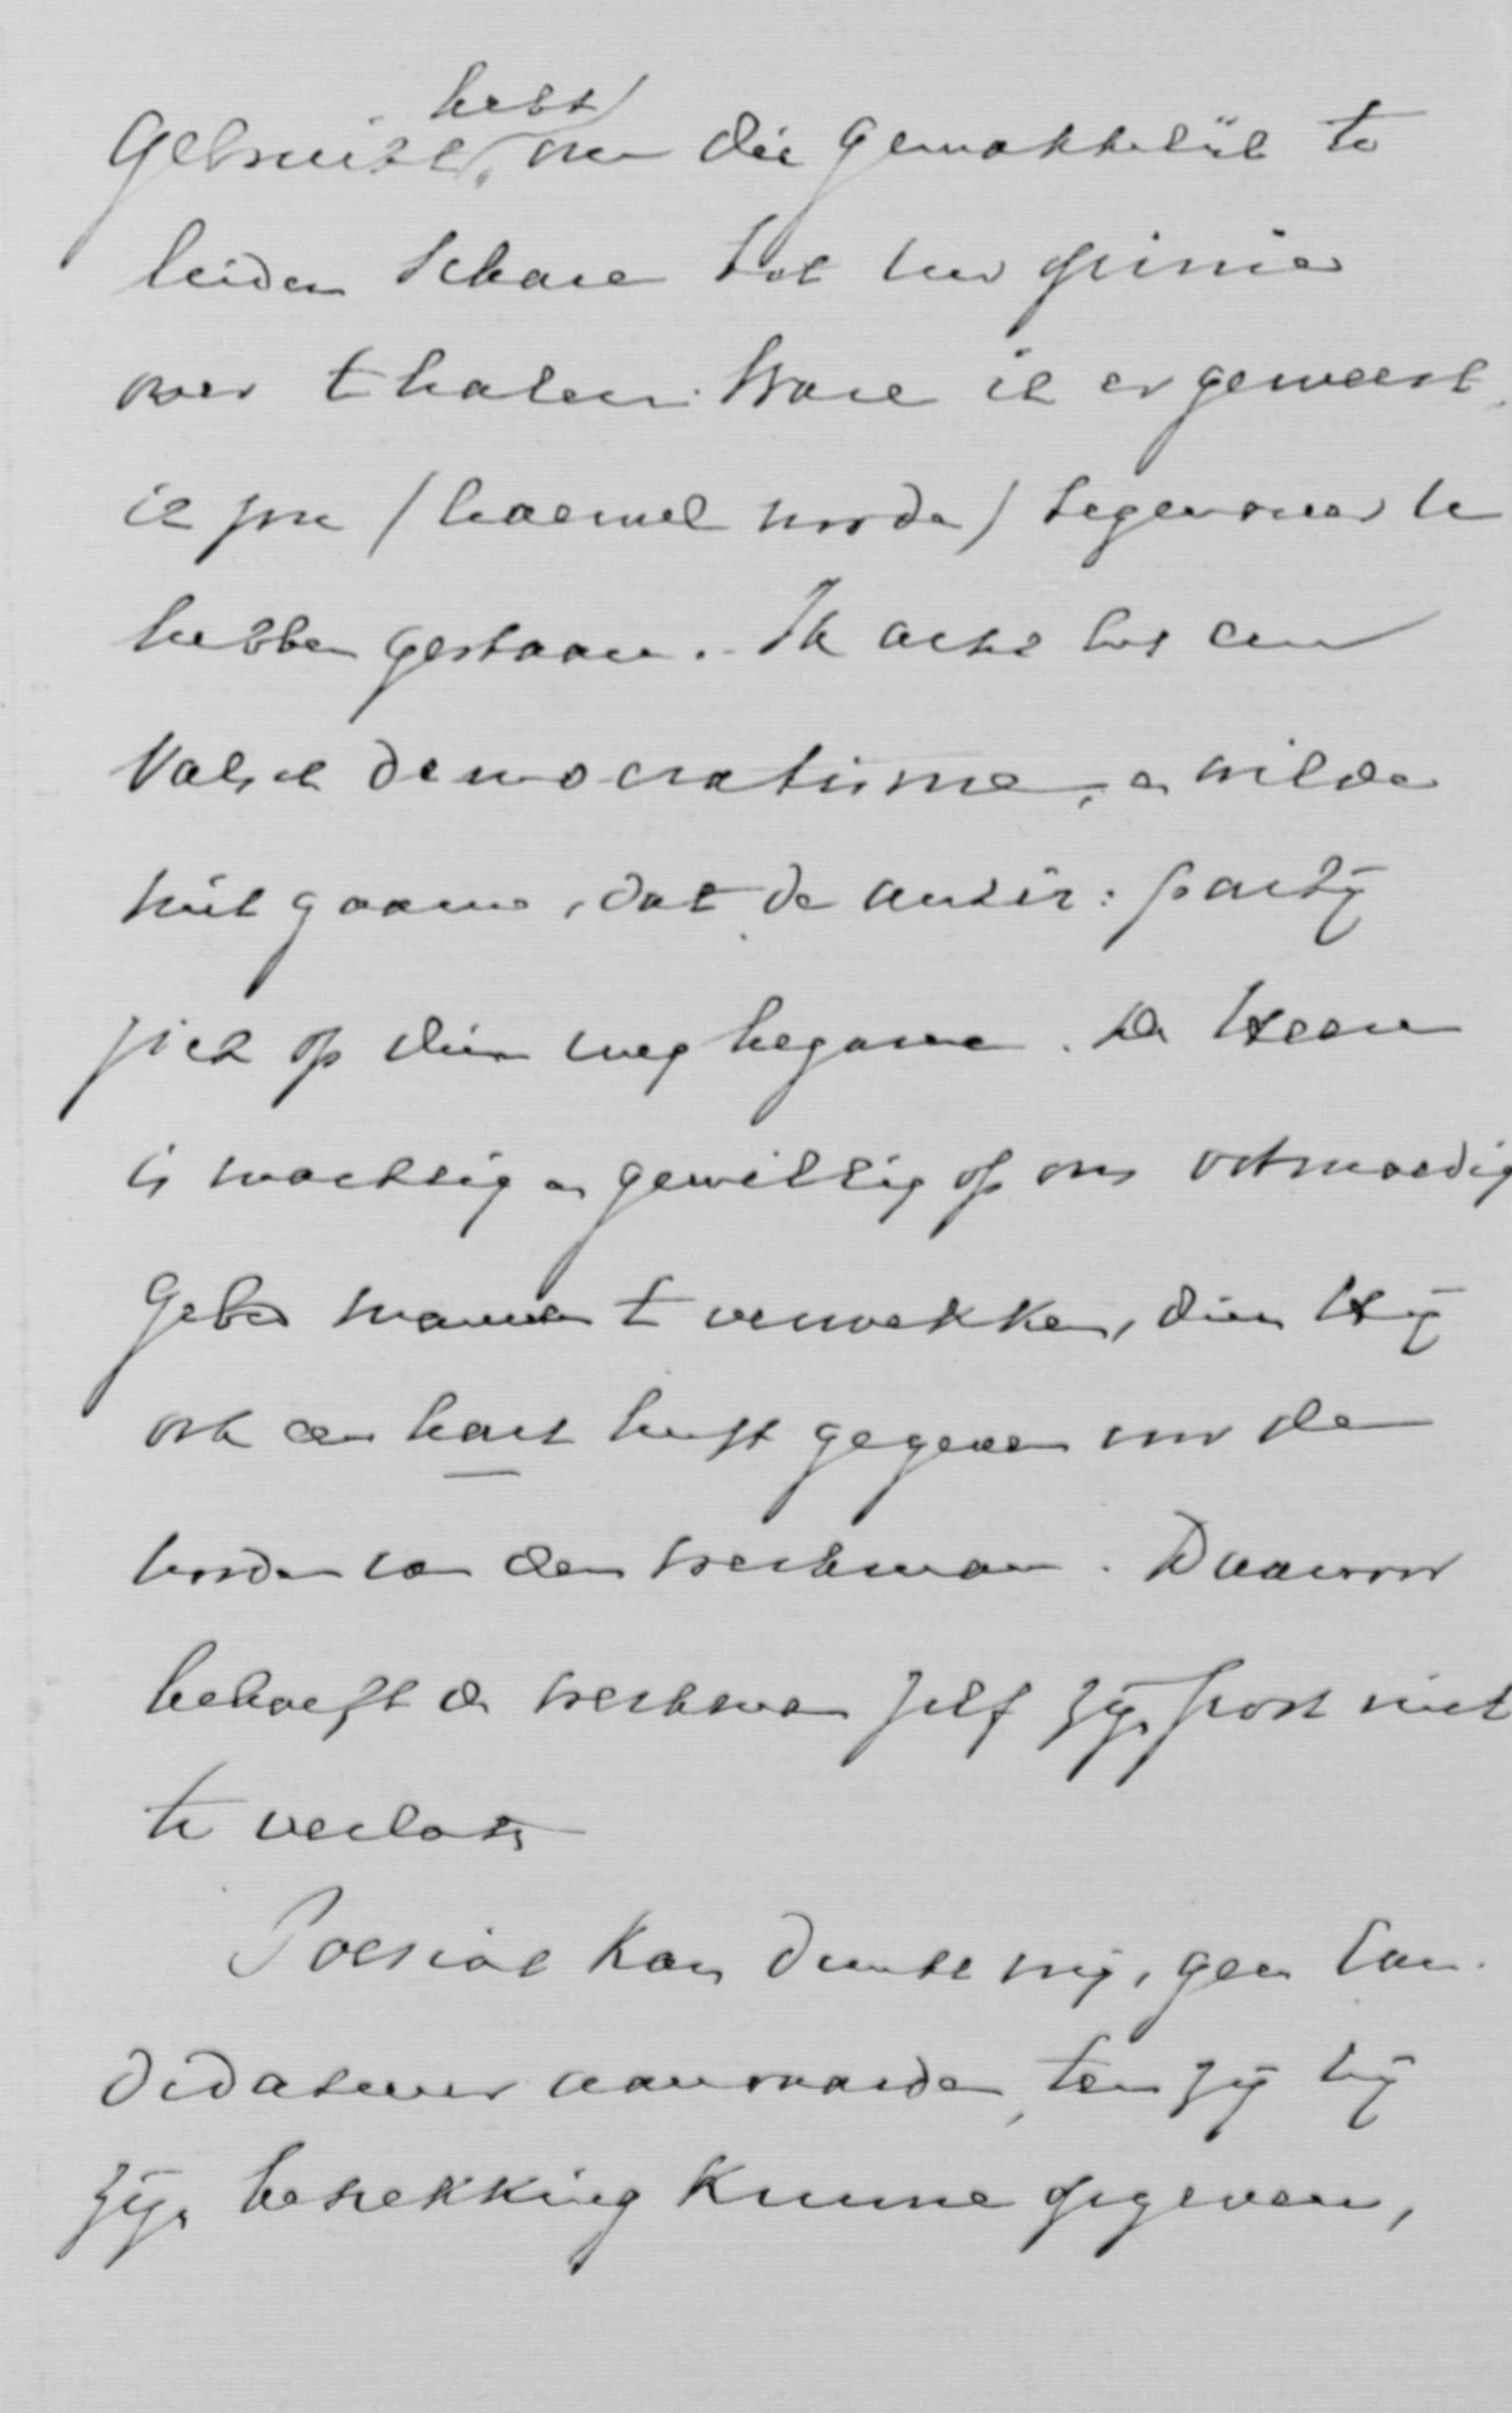 hebt
gebruikt, om die gemakkelijk te
leiden schare tot uw opinie
over te halen. Ware ik er geweest,
ik zou (hoewel noode) tegenover U
hebben gestaan. - Ik acht het een
valsch democratisme, en wilde
niet gaarne, dat de antir: partij
zich op dien weg begave. De Heere
is machtig en gewillig op ons ootmoedig
gebed mannen te verwekken, dien Hij
ook een hart heeft gegeven voor de
nooden van den werkman. Daarvoor
behoeft de werkman zelf zijn post niet
te verlaten
Poesiat kan dunkt mij, geen can-
didatuur aanvaarden, ten zij hij
zijn betrekking kunne opgeven,